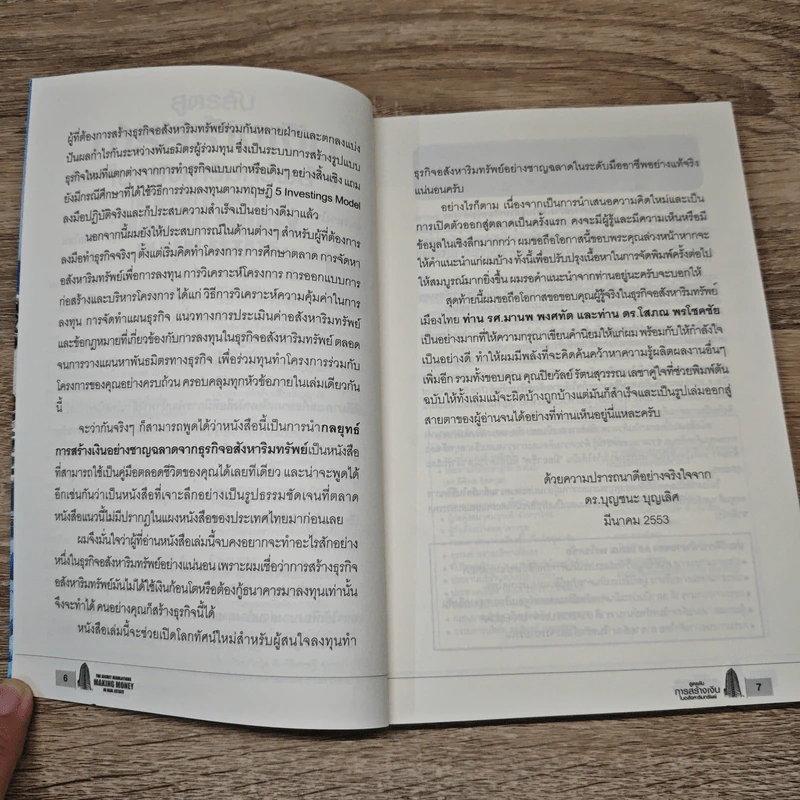 ผู้ที่ต้องการสร้างธุรกิจอสังหาริมทรัพย์ร่วมกันหลายฝ่ายและตกลงแบ่ง
ปันผลกำไรกันระหว่างพันธมิตรผู้ร่วมทุน ซึ่งเป็นระบบการสร้างรูปแบบ
ธุรกิจใหม่ที่แตกต่างจากการทำธุรกิจแบบเก่าหรือเดิมๆ อย่างสิ้นเชิง แถม
ยังมีกรณีศึกษาที่ได้ใช้วิธีการร่วมลงทุนตามทฤษฎี 5 Investings Model
ลงมือปฏิบัติจริงและก็ประสบความสำเร็จเป็นอย่างดีมาแล้ว
นอกจากนี้ผมยังให้ประสบการณ์ในด้านต่างๆ สำหรับผู้ที่ต้องการ
ลงมือทำธุรกิจจริงๆ ตั้งแต่เริ่มคิดทำโครงการ การศึกษาตลาด การจัดหา
อสังหาริมทรัพย์เพื่อการลงทุน การวิเคราะห์โครงการ การออกแบบการ
ก่อสร้างและบริหารโครงการ ได้แก่ วิธีการวิเคราะห์ความคุ้มค่าในการ
ลงทุน การจัดทำแผนธุรกิจ แนวทางการประเมินค่าอสังหาริมทรัพย์
และข้อกฎหมายที่เกี่ยวข้องกับการลงทุนในธุรกิจอสังหาริมทรัพย์ ตลอด
จนการวางแผนหาพันธมิตรทางธุรกิจ เพื่อร่วมทุนทำโครงการร่วมกับ
โครงการของคุณอย่างครบถ้วน ครอบคลุมทุกหัวข้อภายในเล่มเดียวกัน
นี้
จะว่ากันจริงๆ ก็สามารถพูดได้ว่าหนังสือนี้เป็นการนำกลยุทธ์
การสร้างเงินอย่างชาญฉลาดจากธุรกิจอสังหาริมทรัพย์เป็นหนังสือ
ที่สามารถใช้เป็นคู่มือตลอดชีวิตของคุณได้เลยทีเดียว และน่าจะพูดได้
อีกเช่นกันว่าเป็นหนังสือที่เจาะลึกอย่างเป็นรูปธรรมชัดเจนที่ตลาด
หนังสือแนวนี้ไม่มีปรากฏในแผงหนังสือของประเทศไทยมาก่อนเลย
ผมจึงมั่นใจว่าผู้ที่อ่านหนังสือเล่มนี้จบคงอยากจะทำอะไรสักอย่าง
หนึ่งในธุรกิจอสังหาริมทรัพย์อย่างแน่นอน เพราะผมเชื่อว่าการสร้างธุรกิจ
อสังหาริมทรัพย์มันไม่ได้ใช้เงินก้อนโตหรือต้องกู้ธนาคารมาลงทุนเท่านั้น
จึงจะทำได้ คนอย่างคุณก็สร้างธุรกิจนี้ได้
หนังสือเล่มนี้จะช่วยเปิดโลกทัศน์ใหม่สำหรับผู้สนใจลงทุนทำ
6
THE SECRET REVOLUTIONS
MAKING MONEY
IN REAL ESTATE
ธุรกิจอสังหาริมทรัพย์อย่างชาญฉลาดในระดับมืออาชีพอย่างแท้จริง
แน่นอนครับ
อย่างไรก็ตาม เนื่องจากเป็นการนำเสนอความคิดใหม่และเป็น
การเปิดตัวออกสู่ตลาดเป็นครั้งแรก คงจะมีผู้รู้และมีความเห็นหรือมี
ข้อมูลในเชิงลึกมากกว่า ผมขอถือโอกาสนี้ขอบพระคุณล่วงหน้าหากจะ
ให้คำแนะนำแก่ผมบ้าง ทั้งนี้เพื่อปรับปรุงเนื้อหาในการจัดพิมพ์ครั้งต่อไป
ให้สมบูรณ์มากยิ่งขึ้น ผมรอคำแนะนำจากท่านอยู่นะครับจะบอกให้
สุดท้ายนี้ผมขอถือโอกาสขอขอบคุณผู้รู้จริงในธุรกิจอสังหาริมทรัพย์
เมืองไทย ท่าน รศ.มานพ พงศทัต และท่าน ดร.โสภณ พรโชคชัย
เป็นอย่างมากที่ให้ความกรุณาเขียนคำนิยมให้แก่ผม พร้อมกับให้กำลังใจ
เป็นอย่างดี ทำให้ผมมีพลังที่จะคิดค้นคว้าหาความรู้ผลิตผลงานอื่นๆ
เพิ่มอีก รวมทั้งขอบคุณ คุณปิยวัลย์ รัตนสุวรรณ เลขาคู่ใจที่ช่วยพิมพ์ต้น
ฉบับให้ทั้งเล่มแม้จะผิดบ้างถูกบ้างแต่มันก็สำเร็จและเป็นรูปเล่มออกสู่
สายตาของผู้อ่านจนได้อย่างที่ท่านเห็นอยู่นี่แหละครับ
ด้วยความปรารถนาดีอย่างจริงใจจาก
ดร.บุญชนะ บุญเลิศ
มีนาคม 2553
สูตรลับ
การสร้างเงิน
ในอสังหาริมทรัพย์
7